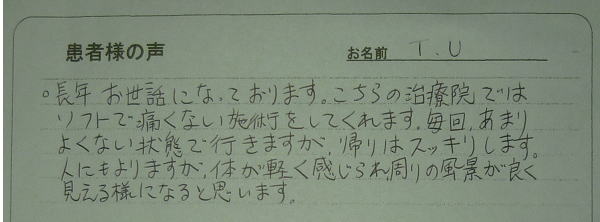 患者様の声
お名前 T.U
。長年お世話になっております。こちらの治療院では
ソフトで痛くない施術をしてくれます。毎回、あまり
よくない状態で行きますが、帰りはスッキリします。
人にもよりますが、体が軽く感じられ周りの風景が良く
見える様になると思います。